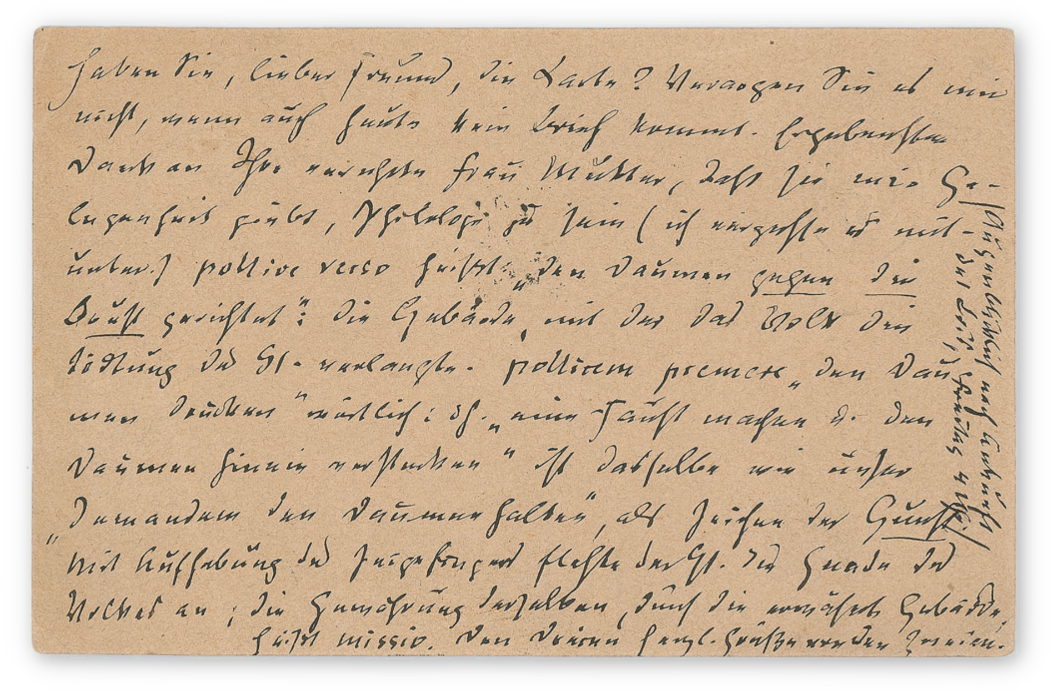 Haben Sie, lieber Freund, die Karte? Verargen Sie es mir
nicht, wenn auch heute kein Brief kommt. Ergebensten
Dank an Ihre verehrte Frau Mutter, daß sie mir Ge-
legenheit giebt, Philologe zu sein (ich vergesse es mit-
unter.) pollice verso heißt: „den Daumen gegen die
Brust gerichtet“: die Gebärde, mit der das Volk die
Tödtung des Gl. verlangte. pollicem premere „den Dau
men drücken“ wörtlich: dh. „eine Faust machen u. den
Daumen hinein verstecken“ ist dasselbe wie unser
„Jemandem den Daumen halten“, als Zeichen der Gunst
Mit Aufhebung des Zeigefingers flehte der Gl. die Gnade des
Volkes an; die Gewährung derselben, durch die erwähnte Gebärde,
heißt missio. Den Dreien herzl. Grüße von den Zweien.
(Augenblicklich nach Ankunft
des Briefs, Freitag